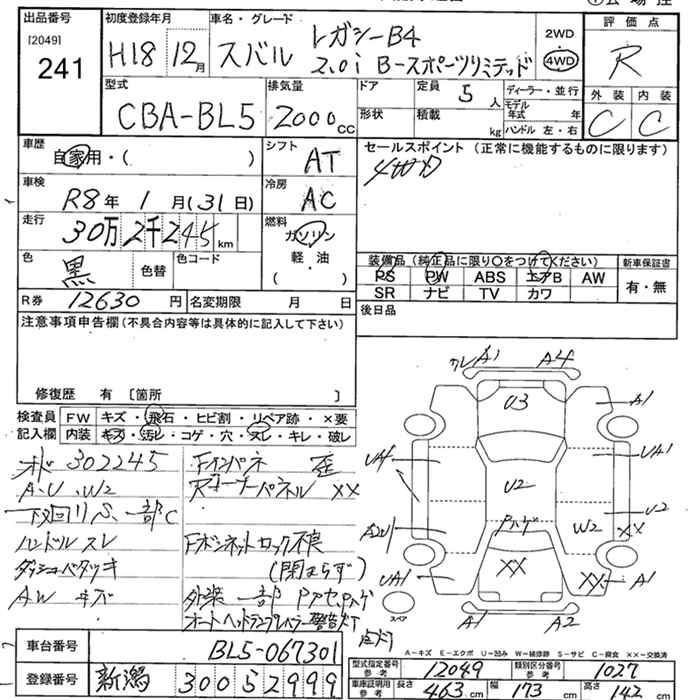 出品番号 [2049] 241
初度登録年月 H18 12月
車名・グレード スバル レガシーB4 2.0i B-スポーツリミテッド
2WD 4WD
評価点 R
外装 内装
C C
型式 CBA-BL5
排気量 2000 CC
ドア
形状
定員 5人
積載 kg
ディーラー・並行
モデル年式 年
ハンドル 左・右
車歴 自家用・( )
シフト AT
車検 R8年 1月(31日)
冷房 AC
走行 30万2千245 km
燃料 ガソリン
軽・油
( )
色 黒 色替 色コード
R券 12630円 名変期限 月 日
セールスポイント (正常に機能するものに限ります)
4WD
装備品(純正品に限り○をつけてください) 新車保証書
PS PW ABS エアB AW
SR ナビ TV カワ
有・無
後日品
注意事項申告欄(不具合内容等は具体的に記入して下さい)
修復歴 有 〔箇所 〕
検査員 FW キズ・飛石・ヒビ割・リペア跡・×要
記入欄 内装 キズ・汚レ・コゲ・穴・スレ・キレ・破レ
302245
A.U.W2
下回りS、一部C
ハンドルスレ
ダッシュベタツキ
AW キズ
Fインパネ 歪
Rコーナーパネル XX
Fボンネットロック不良
(閉まらず)
外装一部
オートヘッドランプレベラー警告灯
点灯
A1 A4
U3
A1
UA4 UA1
U2 U2
W2 XX
UA1 XX XX A1
スペア
A1 A2
A-キズ E-エクボ U-凹み W-補修跡 S-サビ C-腐食 XX-交換済
車台番号 BL5-067301
登録番号 新潟 300 52999
型式指定番号 参考 12049 類別区分番号 参考 1027
車庫証明用 参考 長さ 463cm 幅 173cm 高さ 142cm